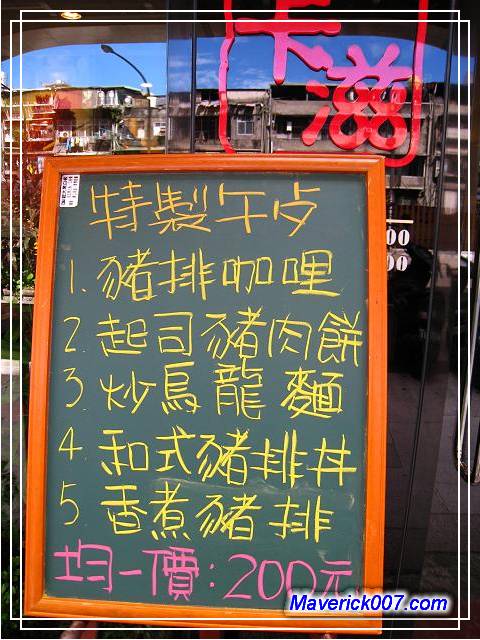 卡滋
特製午点
1. 豬排咖哩
2. 起司豬肉餅
3. 炒烏龍麵
4. 和式豬排丼
5 香煮豬排
均一價：200元
00
00
Maverick007.com